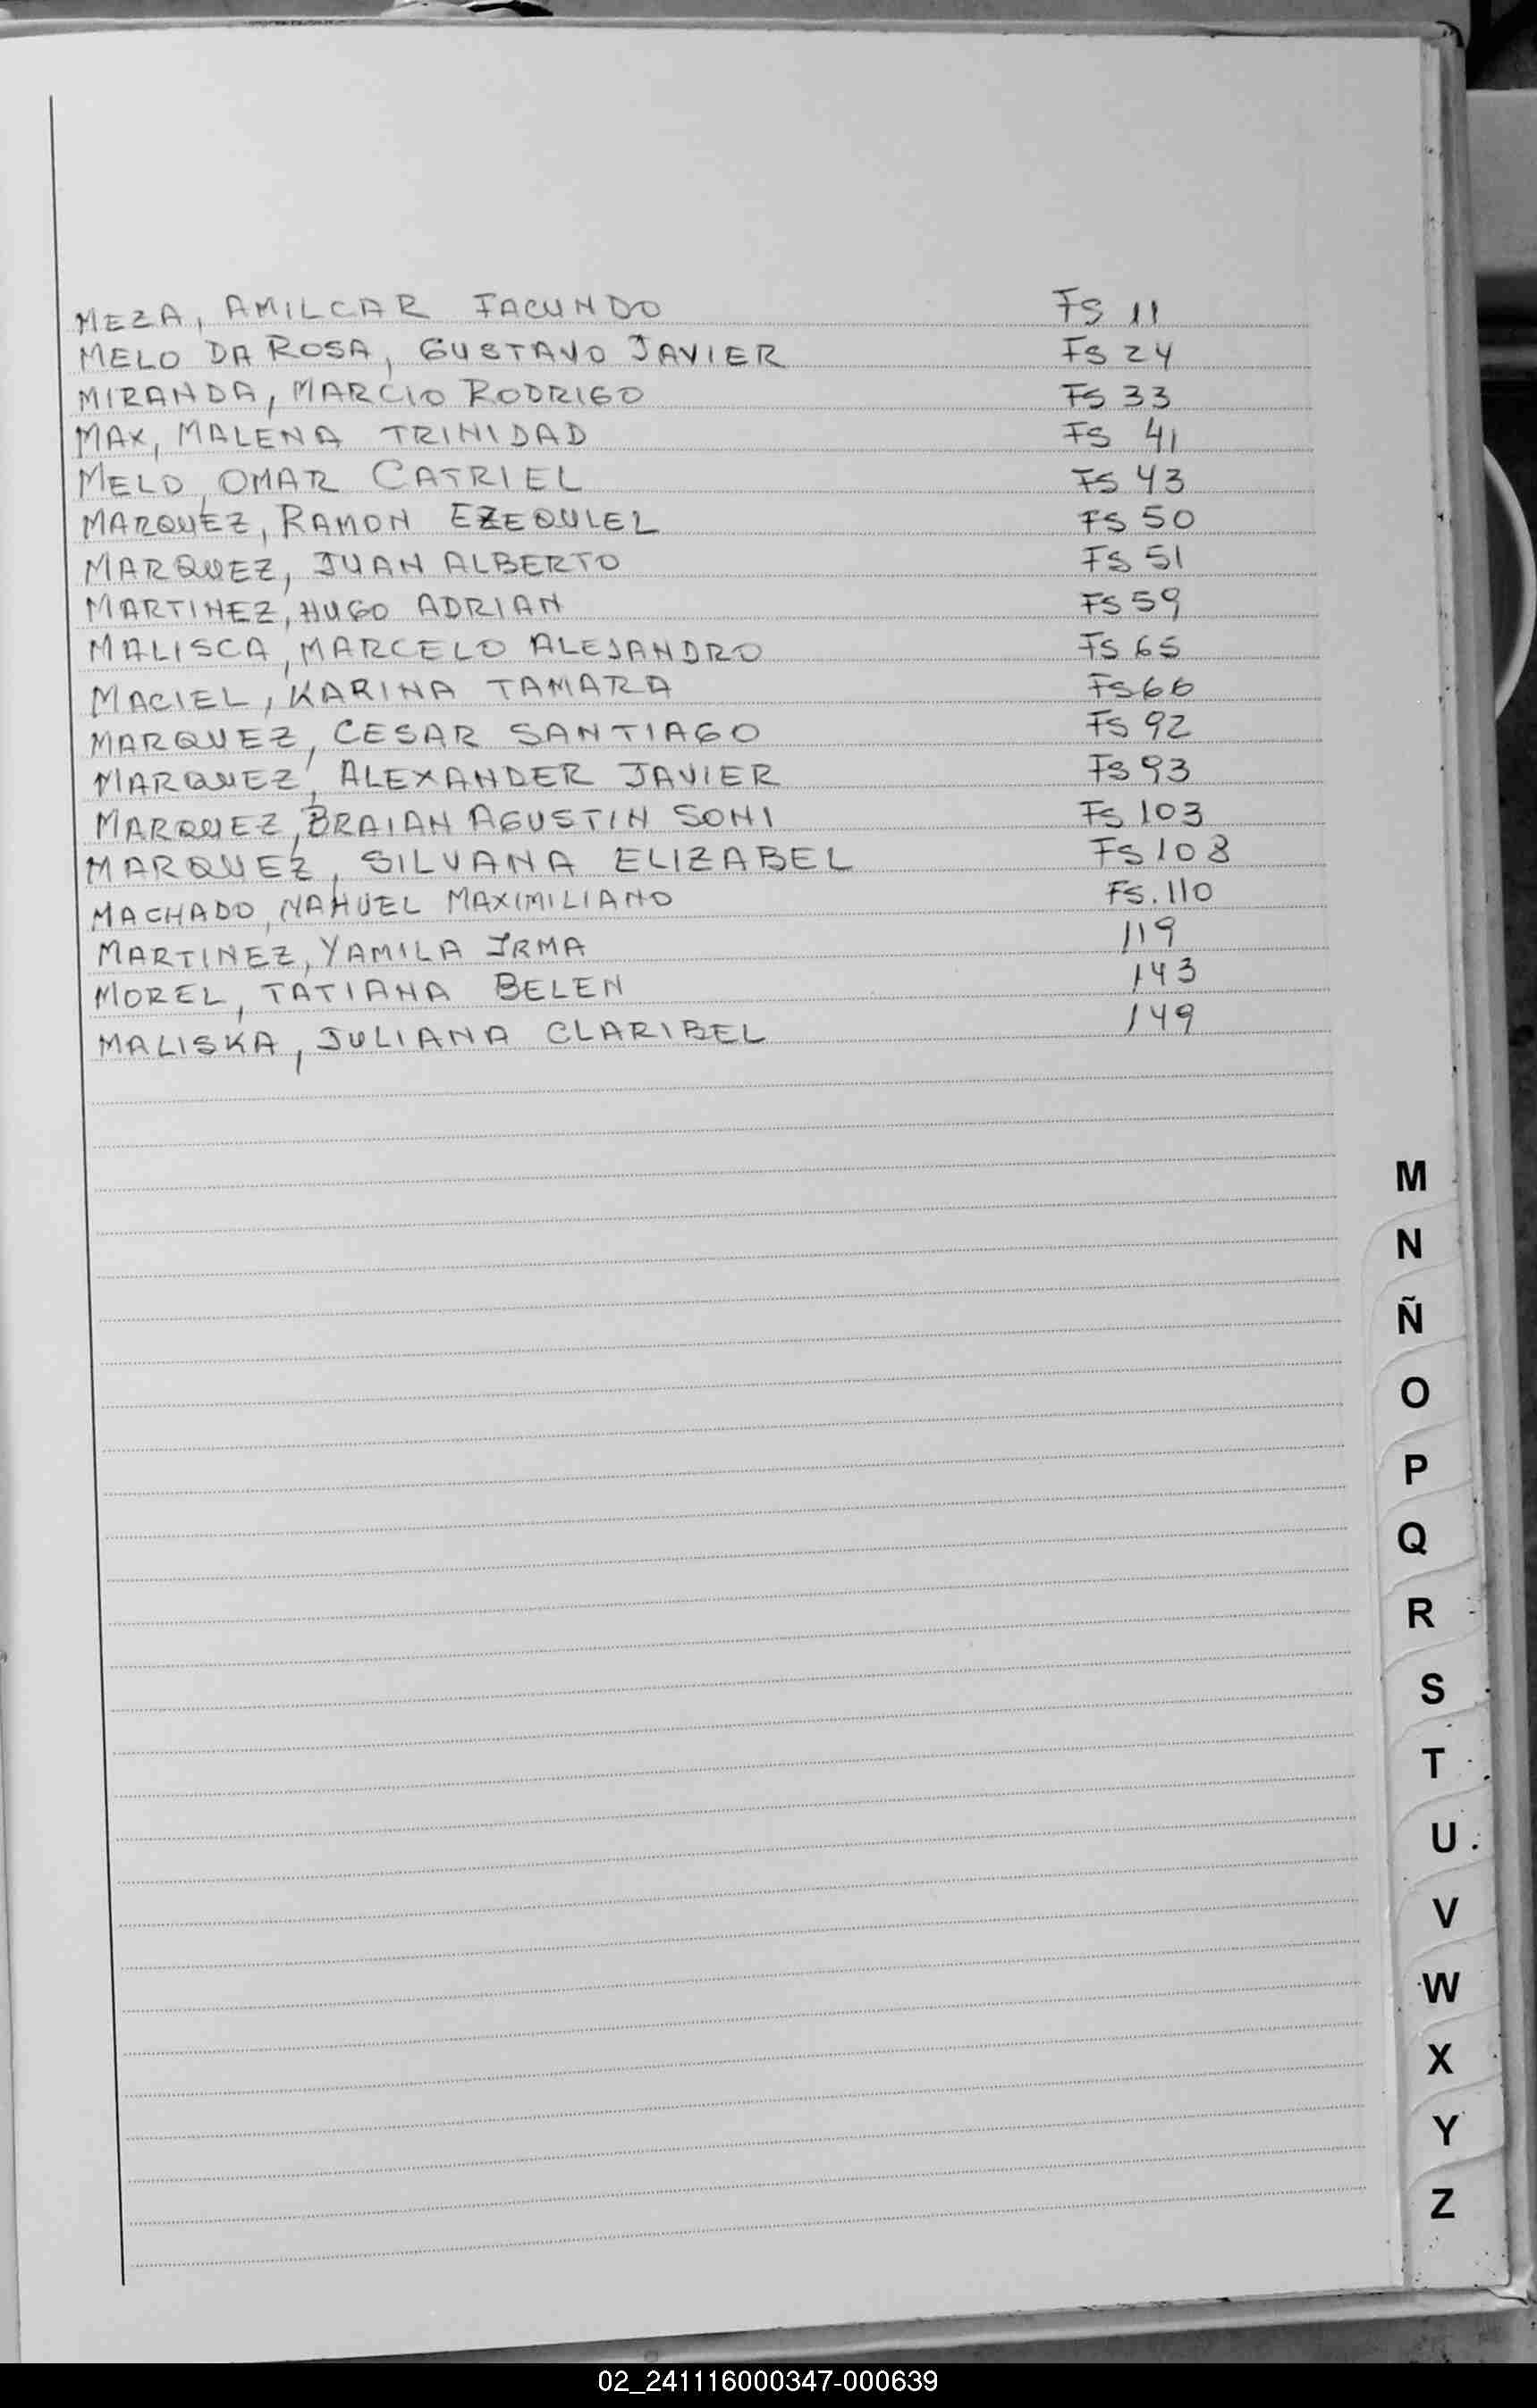 MEZA, AMILCAR FACUNDO FS 11
MELO DA ROSA, GUSTAVO JAVIER FS 24
MIRANDA, MARCIO RODRIGO FS 33
MAX, MALENA TRINIDAD FS 41
MELO, OMAR CATRIEL FS 43
MARQUEZ, RAMON EZEQUIEL FS 50
MARQUEZ, JUAN ALBERTO FS 51
MARTINEZ, HUGO ADRIAN FS 59
MALISCA, MARCELO ALEJANDRO FS 65
MACIEL, KARINA TAMARA FS 66
MARQUEZ, CESAR SANTIAGO FS 92
MARQUEZ, ALEXANDER JAVIER FS 93
MARQUEZ, BRAIAN AGUSTIN SONI FS 103
MARQUEZ, SILVANA ELIZABEL FS 108
MACHADO, NAHUEL MAXIMILIANO FS. 110
MARTINEZ, YAMILA IRMA 119
MOREL, TATIANA BELEN 143
MALISKA, JULIANA CLARIBEL 149
M
N
Ñ
O
P
Q
R
S
T
U
V
W
X
Y
Z
02_241116000347-000639